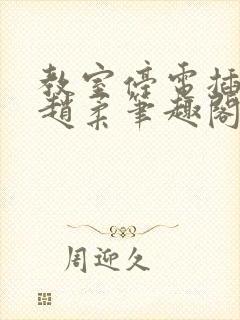 教室停電插
趙柔笔趣閣
周迎久